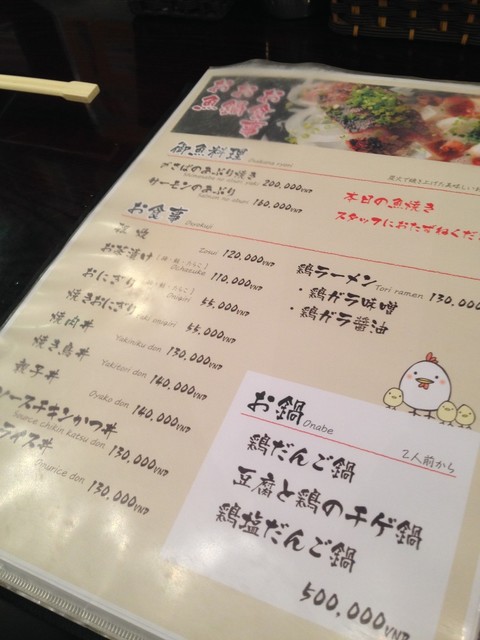 お食事
お鍋
お魚
御魚料理
〆さばのあぶり焼き 200,000VND
サーモンのあぶり 160,000VND
炭火で焼き上げた美味しい
本日の魚焼き
スタッフにおたずねくだ
お食事 Osyokuji
雑炊 Zosui 120,000VND
お茶漬け Ochazuke 110,000VND
おにぎり Onigiri 55,000VND
焼きおにぎり Yaki onigiri 55,000VND
焼肉丼 Yakiniku don 130,000VND
焼き鳥丼 Yakitori don 140,000VND
親子丼 Oyako don 140,000VND
ソースチキンかつ丼 Source chikin katsu don 130,000VND
ライス丼 130,000VND
鶏ラーメン Tori ramen 130,000
・鶏ガラ味噌
・鶏ガラ醤油
お鍋 Onabe
2人前から
鶏だんご鍋
豆腐と鶏のチゲ鍋
鶏塩だんご鍋
500,000VND